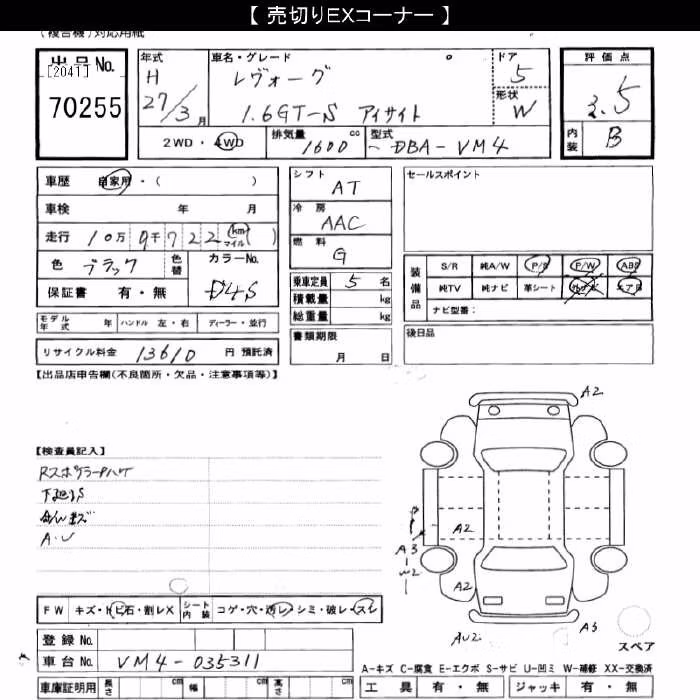 【 売切りEXコーナー 】
(複合機) 対応用紙
出品No.
[2041]
70255
年式
H
27/3 月
車名・グレード
レヴォーグ
1.6GT-S アイサイト
ドア
5
形状
W
評価点
3.5
内装
B
2WD・4WD
排気量 1600 cc
型式 DBA-VM4
車歴 自家用・( )
車検 年 月
走行 10万9千722 (km マイル)
色 ブラック
色替
カラーNo.
D4S
保証書 有・無
シフト
AT
冷房
AAC
燃料
G
乗車定員 5 名
積載量 kg
総重量 kg
書類期限
月 日
セールスポイント
装備品
S/R 純A/W P/S P/W ABS
純TV 純ナビ 革シート エアB
ナビ型番:
後日品
モデル年式 年 ハンドル 左・右 ディーラー・並行
リサイクル料金 13610 円 預託済
【出品店申告欄(不良箇所・欠品・注意事項等)】
【検査員記入】
A・U
A2
A2
A3
W2
A2
AU2
A3
スペア
FW キズ・トビ石・割レX シート内装 コゲ・穴・破レ・スレ
登録No.
車台No. VM4-035311
A-キズ C-腐食 E-エクボ S-サビ U-凹ミ W-補修 XX-交換済
車庫証明用 長さ cm 幅 cm 高さ cm
工具 有・無 ジャッキ 有・無